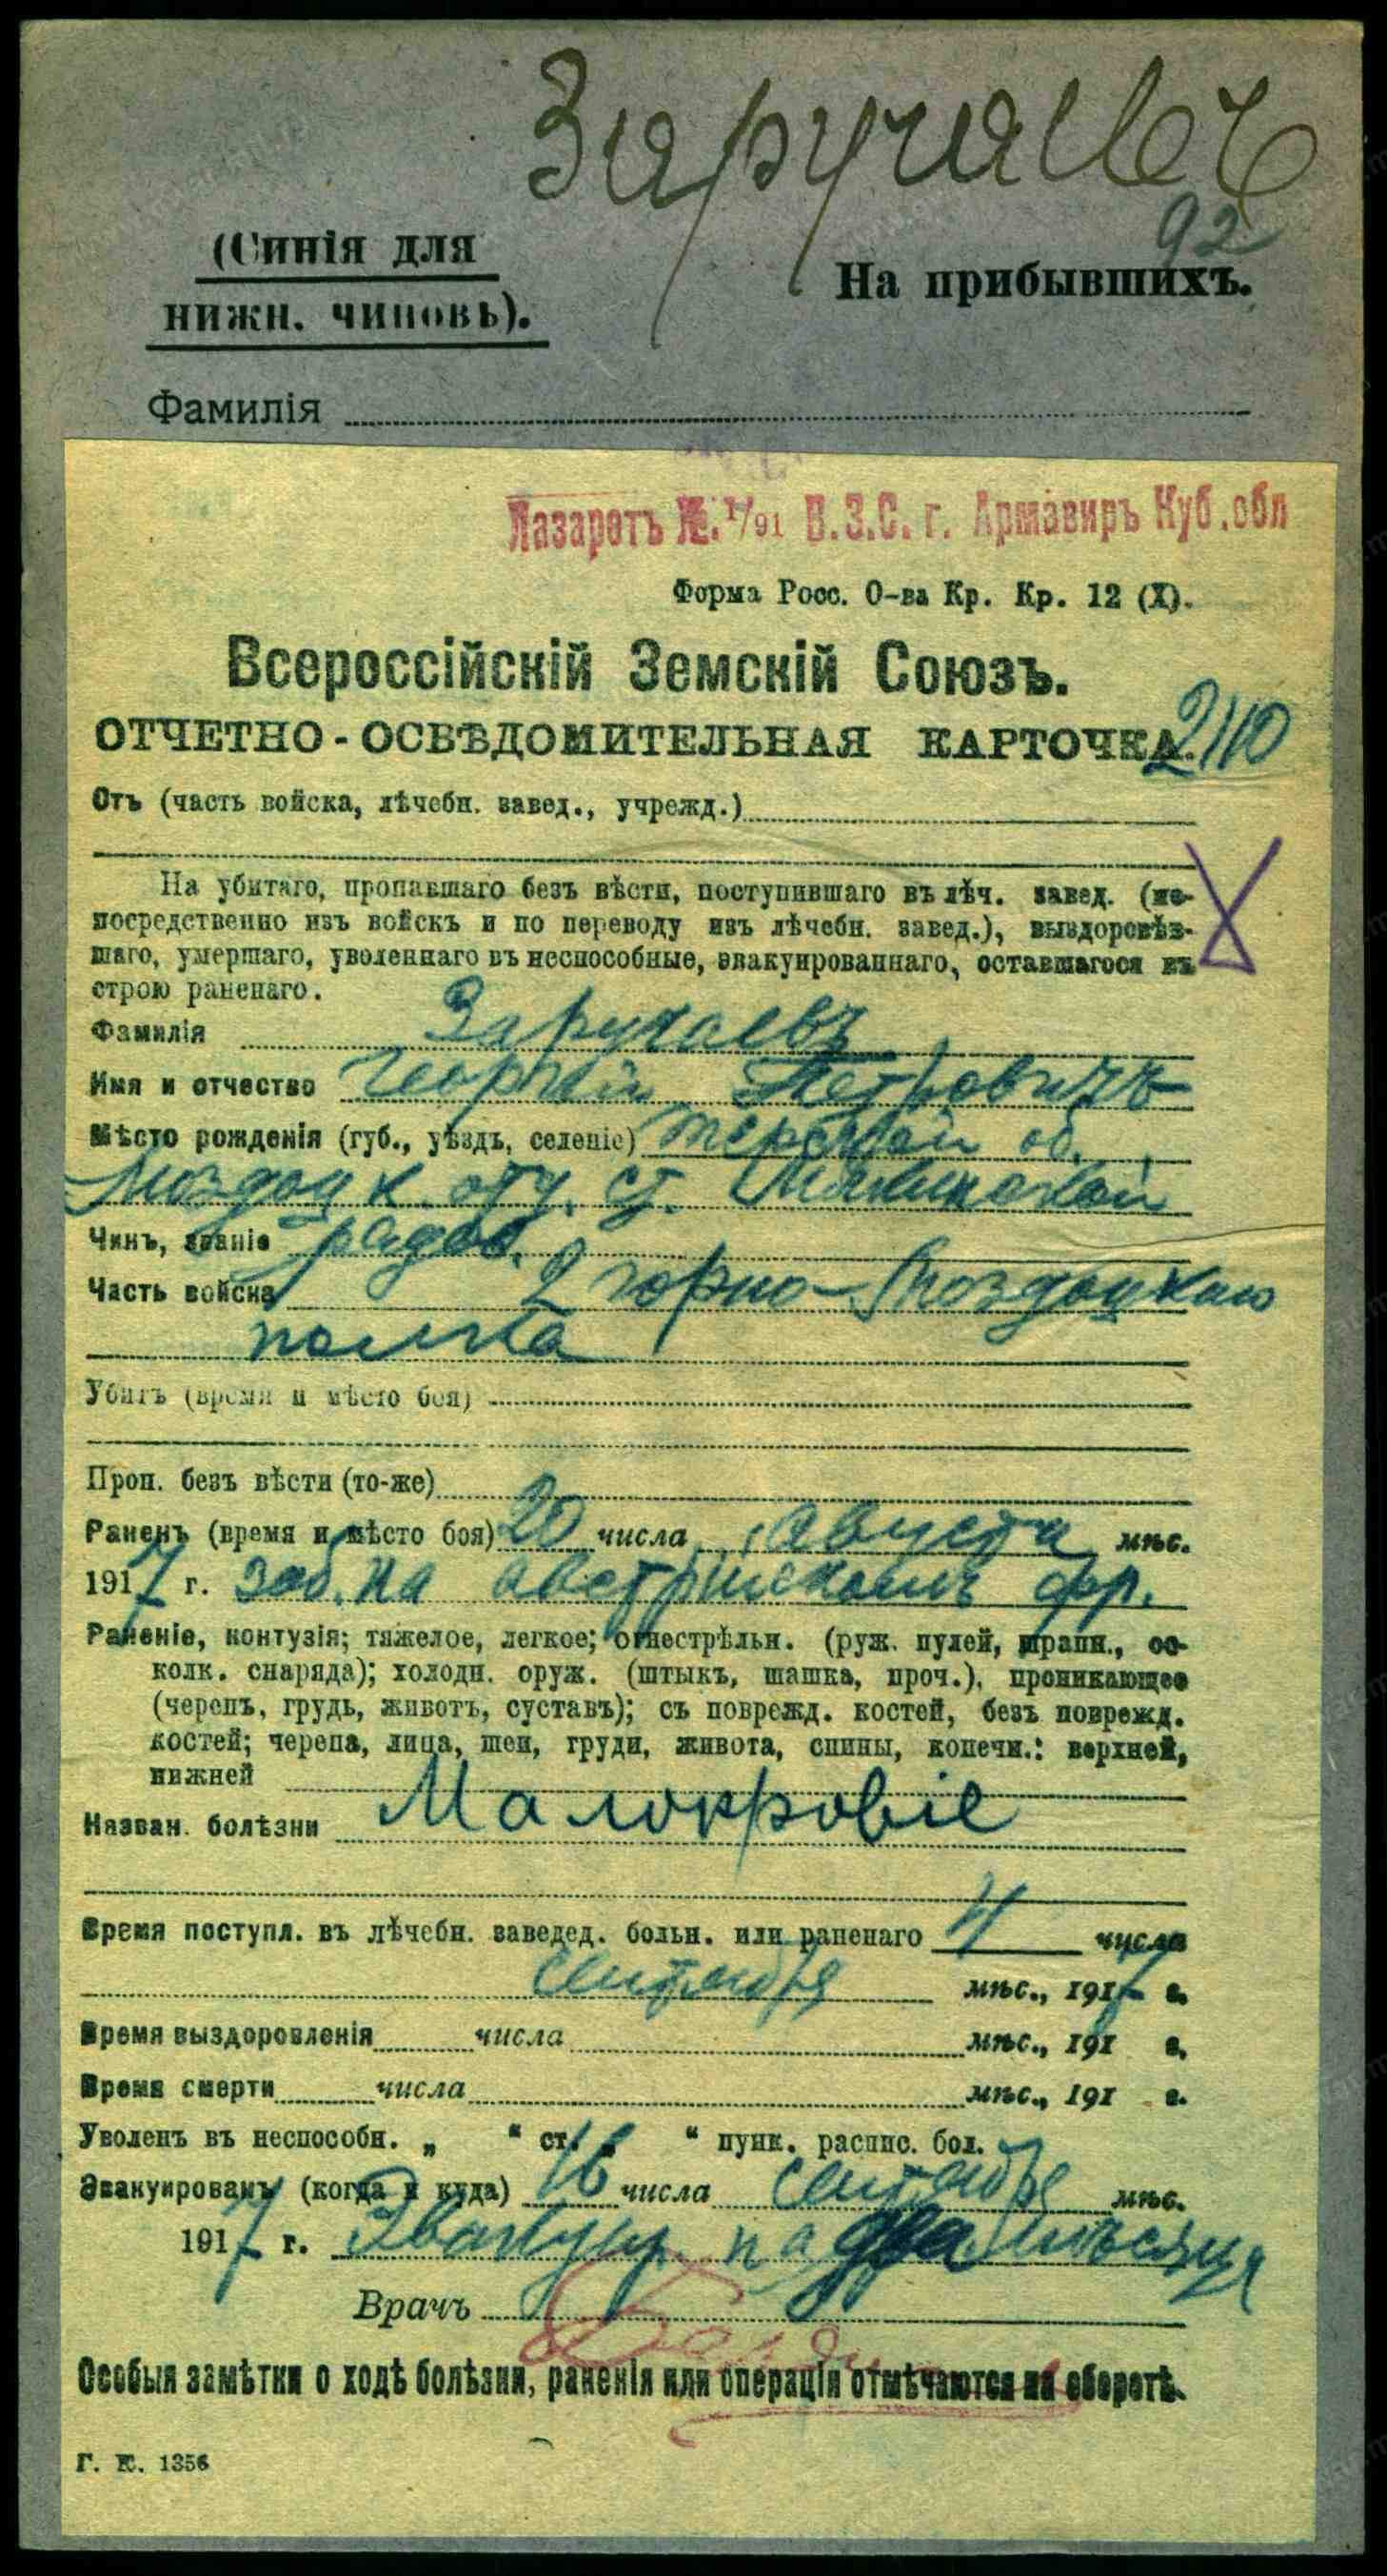 Заручаевъ
92
(Синія для
нижн. чиновъ).
На прибывшихъ.
Фамилія
Лазаретъ №. 1/91 В.З.С. г. Армавиръ Куб.обл
Форма Росс. О-ва Кр. Кр. 12 (X).
Всероссійскій Земскій Союзъ.
ОТЧЕТНО-ОСВѢДОМИТЕЛЬНАЯ КАРТОЧКА.
Отъ (часть войска, лѣчебн. завед., учрежд.)
На убитаго, пропавшаго безъ вѣсти, поступившаго въ лѣч. завед. (не-
посредственно изъ войскъ и по переводу изъ лѣчебн. завед.), выздоровѣв-
шаго, умершаго, уволеннаго въ неспособные, эвакуированнаго, оставшагося въ
строю раненаго.
Фамилія Заручаевъ
Имя и отчество Георгій Петровичъ
Мѣсто рожденія (губ., уѣздъ, селеніе) Терской об.
Моздоцк. отд. ст.
Чинъ, званіе рядов.
Часть войска 2 горно-Моздоцкаго
полка
Убитъ (время и мѣсто боя)
Проп. безъ вѣсти (то-же)
Раненъ (время и мѣсто боя) 20 числа августа мѣс.
1917 г. заб. на австрійскомъ фр.
Раненіе, контузія; тяжелое, легкое; огнестрѣльн. (руж. пулей, шрапн., ос-
колк. снаряда); холодн. оруж. (штыкъ, шашка, проч.), проникающее
(черепъ, грудь, животъ, суставъ); съ поврежд. костей, безъ поврежд.
костей; черепа, лица, шеи, груди, живота, спины, конечн.: верхней,
нижней
Назван. болѣзни Малокровіе
Время поступл. въ лѣчебн. заведед. больн. или раненаго 4 числа
сентября мѣс., 1917 г.
Время выздоровленія числа мѣс., 191 г.
Время смерти числа мѣс., 191 г.
Уволенъ въ неспособн. „ “ ст. „ “ пунк. распис. бол.
Эвакуированъ (когда и куда) 16 числа сентября мѣс.
1917 г. Эвакуир. на два мѣсяца
Врачъ
Особыя замѣтки о ходѣ болѣзни, раненія или операціи отмѣчаются на оборотѣ.
Г. К. 1356